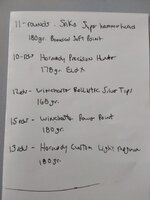 11-rounds Sako Super hammerhead
180gr. Bonded Soft Point
10-rds Hornady Precision Hunter
178gr ELDX
12rds - Winchester Ballistic Silver Tips
168gr.
15rds - Winchester Power Point
180gr.
13rds - Hornady Custom Light Magnum
180gr.